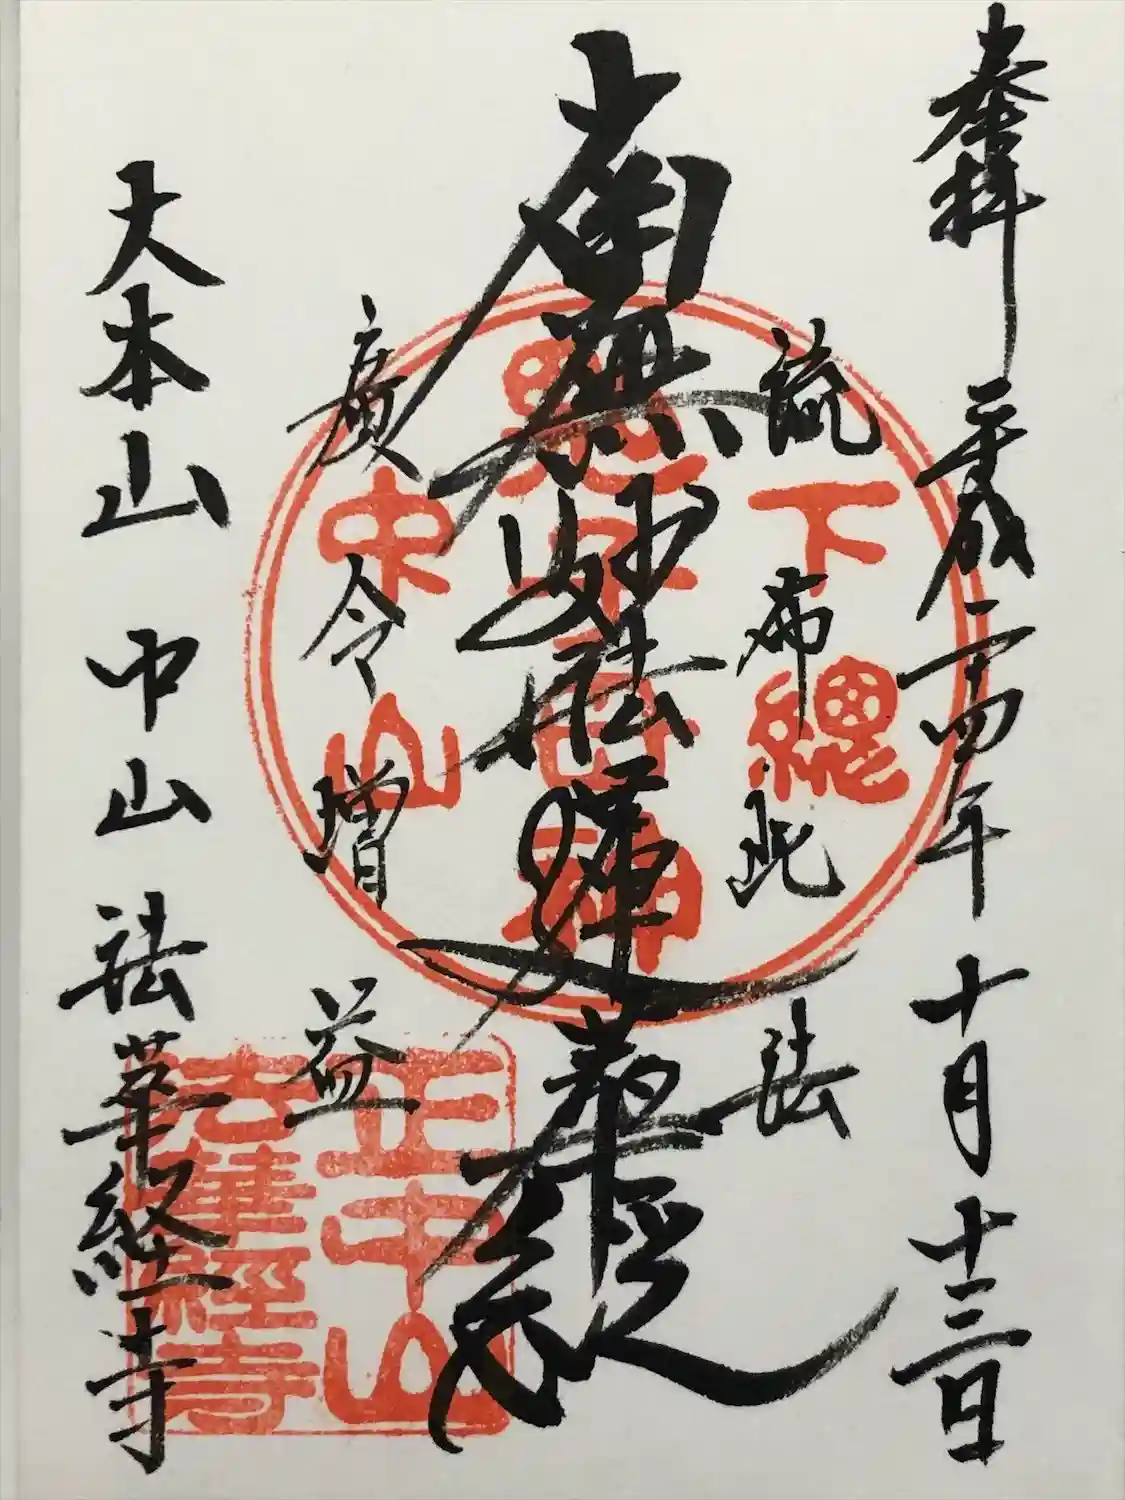 奉拝 平成二十四年十月十三日
流布此法
南無妙法蓮華経
廣令増益
大本山 中山 法華経寺
下總
鬼子母神
中山
正中山
法華經寺